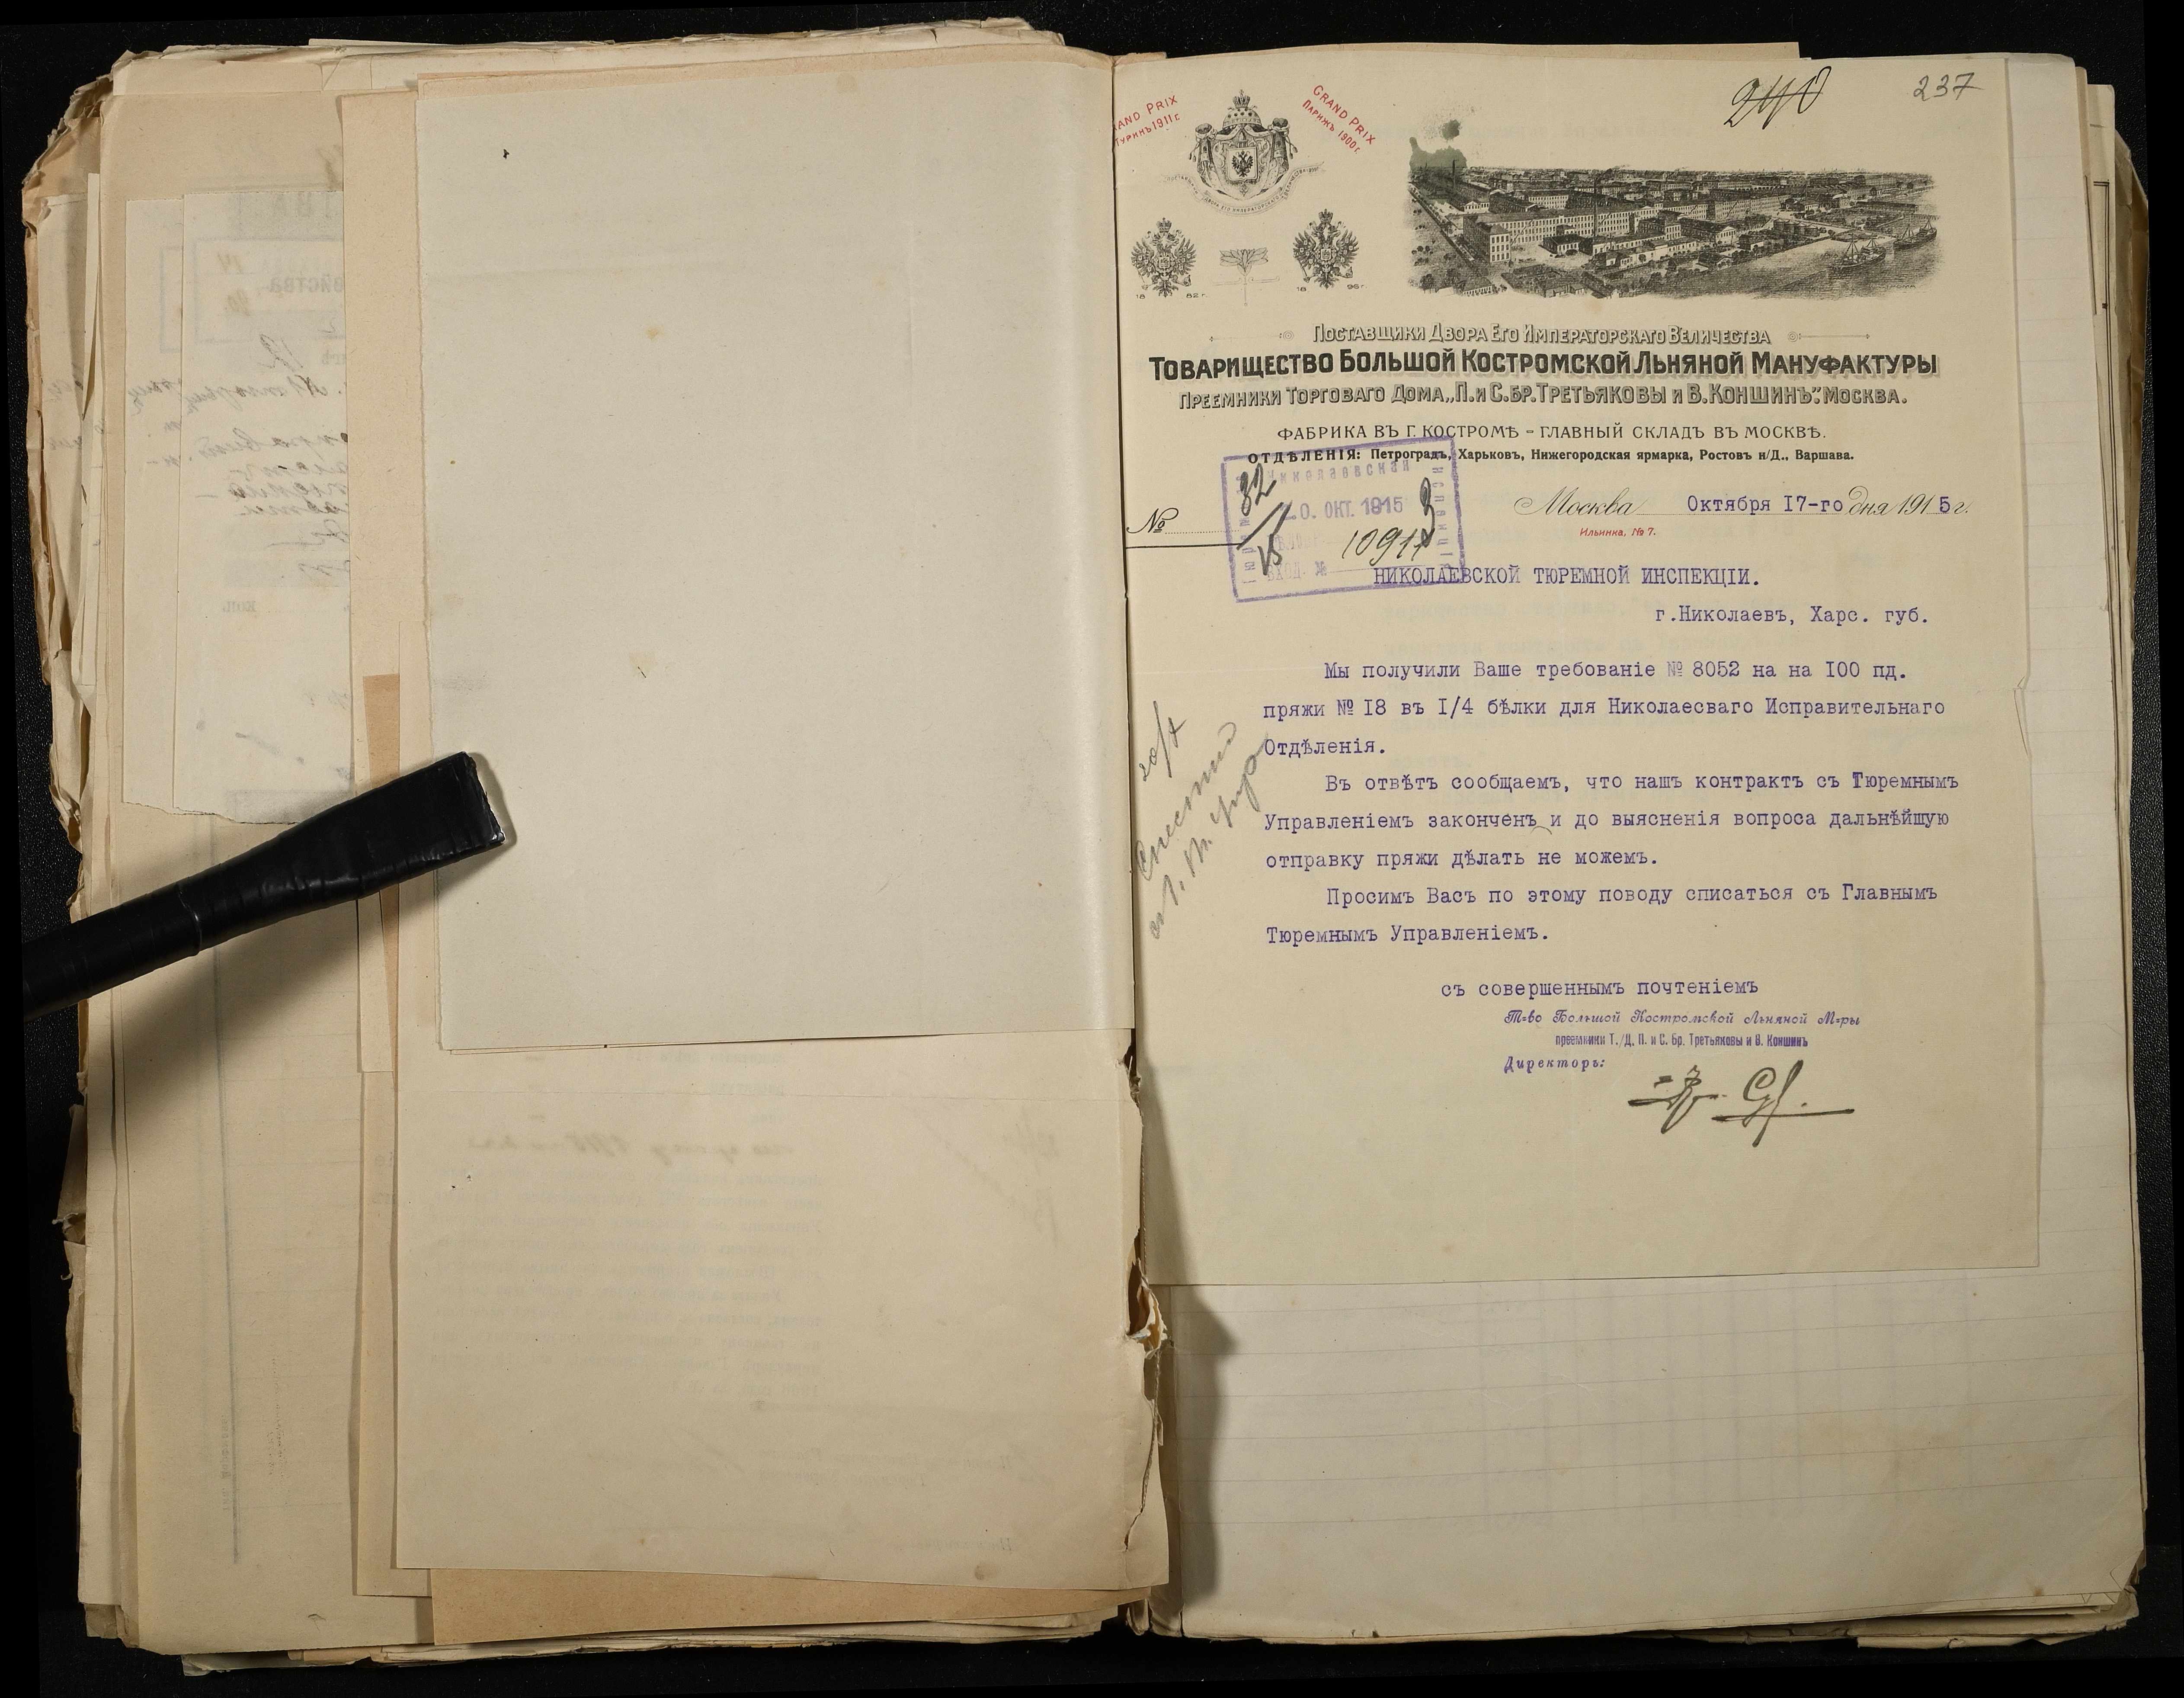 240
237
GRAND PRIX
ПАРИЖЪ 1900 г.
ТУРИНЪ 1911 г.
18 82 г.
18 96 г.
ПОСТАВЩИКИ ДВОРА ЕГО ИМПЕРАТОРСКАГО ВЕЛИЧЕСТВА
ТОВАРИЩЕСТВО БОЛЬШОЙ КОСТРОМСКОЙ ЛЬНЯНОЙ МАНУФАКТУРЫ
ПРЕЕМНИКИ ТОРГОВАГО ДОМА „П. и С. БР. ТРЕТЬЯКОВЫ и В. КОНШИНЪ". МОСКВА.
ФАБРИКА ВЪ Г. КОСТРОМѢ - ГЛАВНЫЙ СКЛАДЪ ВЪ МОСКВѢ.
ОТДѢЛЕНІЯ: Петроградъ, Харьковъ, Нижегородская ярмарка, Ростовъ н/Д., Варшава.
Николаевская
20. ОКТ. 1915
ВХОД. №
№
Москва Октября I7-го дня 1915 г.
Ильинка, № 7.
НИКОЛАЕВСКОЙ ТЮРЕМНОЙ ИНСПЕКЦІИ.
г.Николаевъ, Харс. губ.
Мы получили Ваше требованіе № 8052 на на I00 пд.
пряжи № I8 въ I/4 бѣлки для Николаесваго Исправительнаго
Отдѣленія.
Въ отвѣтъ сообщаемъ, что нашъ контрактъ съ Тюремнымъ
Управленіемъ законченъ и до выясненія вопроса дальнѣйшую
отправку пряжи дѣлать не можемъ.
Просимъ Васъ по этому поводу списаться съ Главнымъ
Тюремнымъ Управленіемъ.
съ совершеннымъ почтеніемъ
Т-во Большой Костромской Льняной М-ры
преемники Т./Д. П. и С. Бр. Третьяковы и В. Коншинъ
Директоръ:
20/X